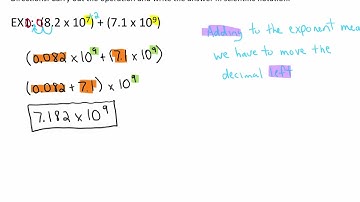 Directions: Carry out the operation and write the answer in scientific notation.
EX1: (8.2 x 10⁷)² + (7.1 x 10⁹)
(0.082 x 10⁹ + (7.1 x 10⁹)
(0.082 + 7.1) x 10⁹
7.182 x 10⁹
Adding to the exponent mea
we have to move the
decimal left